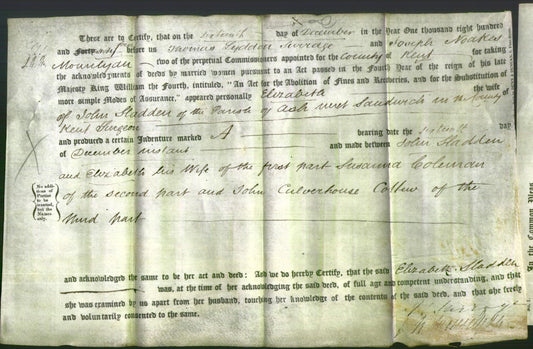 These are to Certify, that on the sixteenth day of December in the Year One thousand eight hundred
and before us Furley and Joseph Noakes
Mourilyan two of the perpetual Commissioners appointed for the County of Kent for taking
the acknowledgments of deeds by married women pursuant to an Act passed in the Fourth Year of the reign of his late
Majesty King William the Fourth, intituled, "An Act for the Abolition of Fines and Recoveries, and for the Substitution of
more simple Modes of Assurance," appeared personally Elizabeth the wife
of John Sladden of the Parish of Ash next Sandwich in the County of
Kent Surgeon
and produced a certain Indenture marked A bearing date the sixteenth day
of December instant and made between John Sladden
and Elizabeth his Wife of the first part Susanna Coleman
of the second part and John Culverhouse Collins of the
third part
No addi-
tions of
Parties
to be
inserted,
but the
Names
only.
and acknowledged the same to be her act and deed: And we do hereby Certify, that the said Elizabeth Sladden
was, at the time of her acknowledging the said deed, of full age and competent understanding, and that
she was examined by us apart from her husband, touching her knowledge of the contents of the said deed, and that she freely
and voluntarily consented to the same.
In the Common Pleas